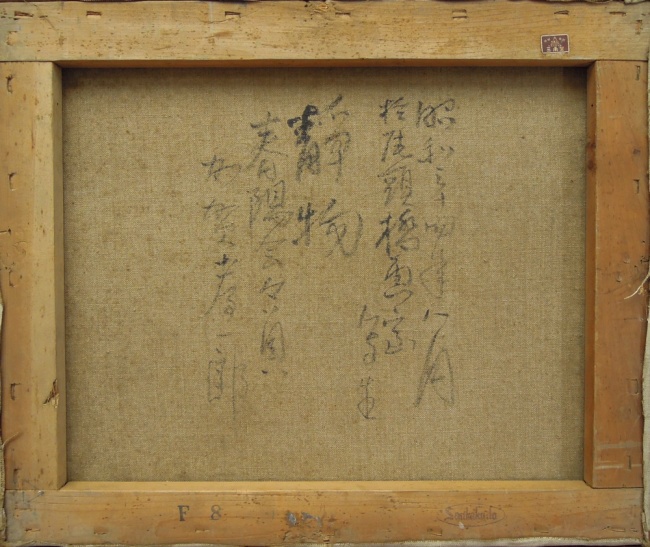 昭和三十四年八月
於尾頭橋画室
写生
静物
春陽会会員
加賀孝一郎
F 8